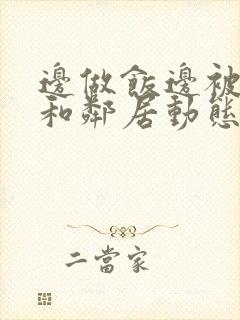 邊做飯邊被
和鄰居動態
二當家